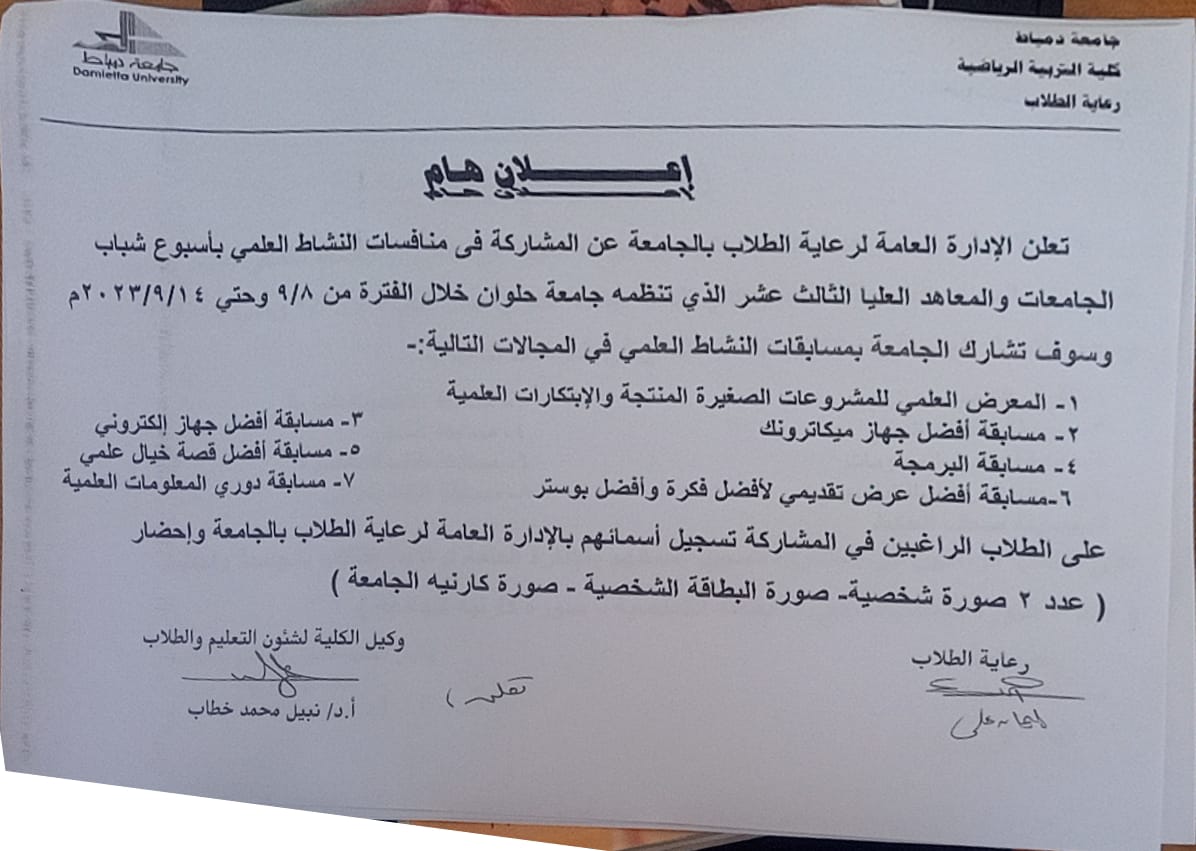 جامعة دمياط
كلية التربية الرياضية
رعاية الطلاب
جامعة دمياط
Damietta University
إعــــلان هام
تعلن الإدارة العامة لرعاية الطلاب بالجامعة عن المشاركة فى منافسات النشاط العلمي بأسبوع شباب
الجامعات والمعاهد العليا الثالث عشر الذي تنظمه جامعة حلوان خلال الفترة من ٩/٨ وحتي ٢٠٢٣/٩/١٤م
وسوف تشارك الجامعة بمسابقات النشاط العلمي في المجالات التالية:-
١- المعرض العلمي للمشروعات الصغيرة المنتجة والإبتكارات العلمية
٢- مسابقة أفضل جهاز ميكاترونك
٣- مسابقة أفضل جهاز إلكتروني
٤- مسابقة البرمجة
٥- مسابقة أفضل قصة خيال علمي
٦-مسابقة أفضل عرض تقديمي لأفضل فكرة وأفضل بوستر
٧- مسابقة دوري المعلومات العلمية
على الطلاب الراغبين في المشاركة تسجيل أسمائهم بالإدارة العامة لرعاية الطلاب بالجامعة وإحضار
( عدد ٢ صورة شخصية- صورة البطاقة الشخصية - صورة كارنيه الجامعة )
رعاية الطلاب
وكيل الكلية لشئون التعليم والطلاب
أ.د/ نبيل محمد خطاب